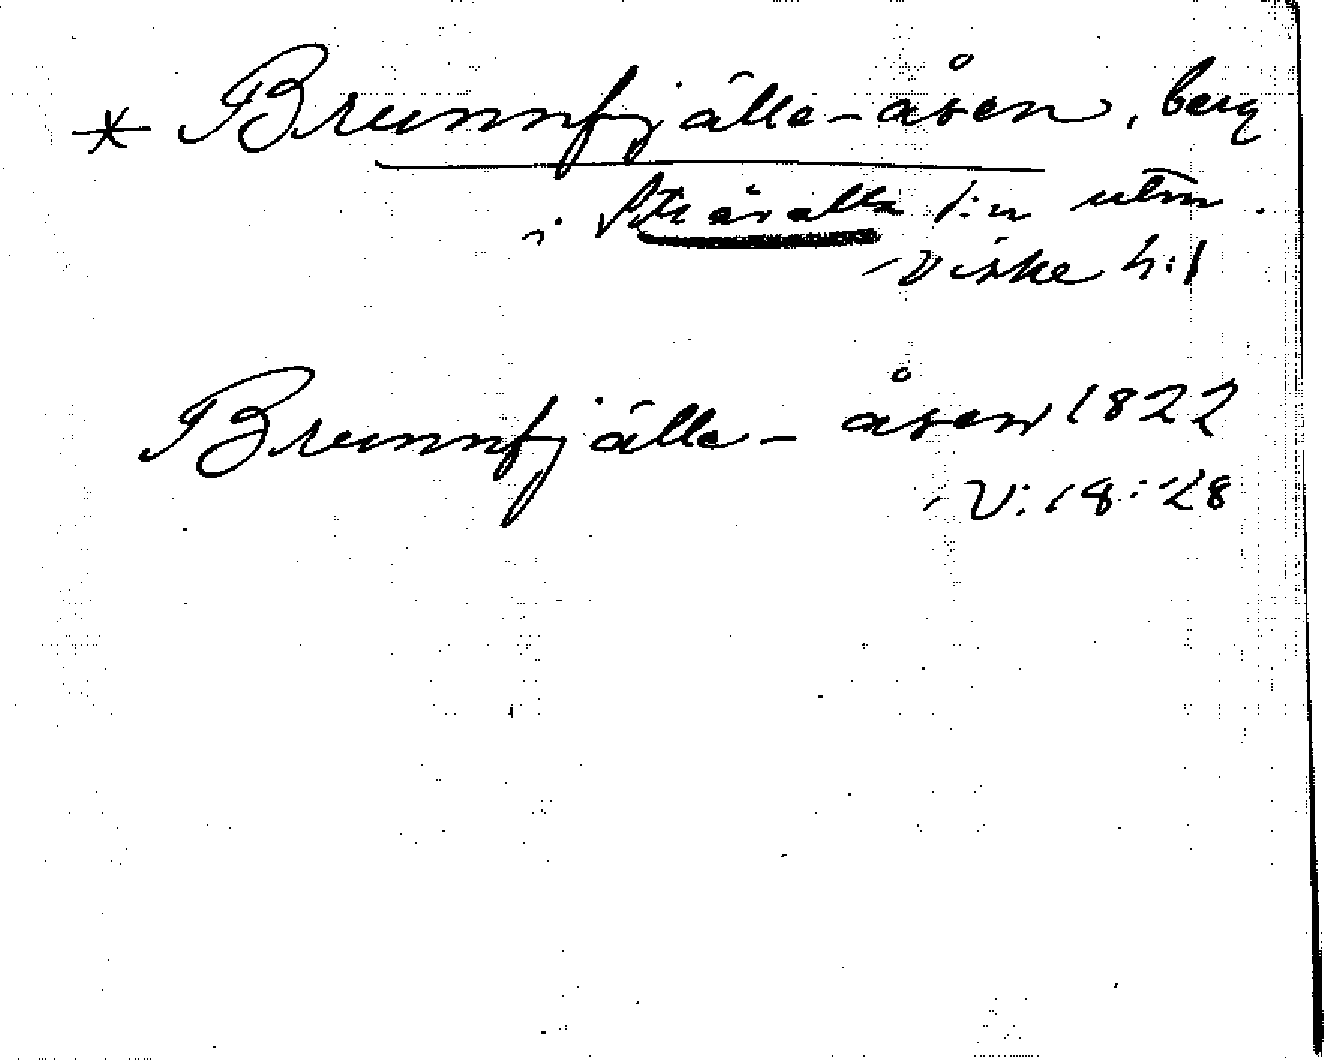 * Brunnfjälle-åsen, berg
i Stråvalla s:n utm.
Viske h:d
Brunnfjälle-åsen 1822
V: 18:28